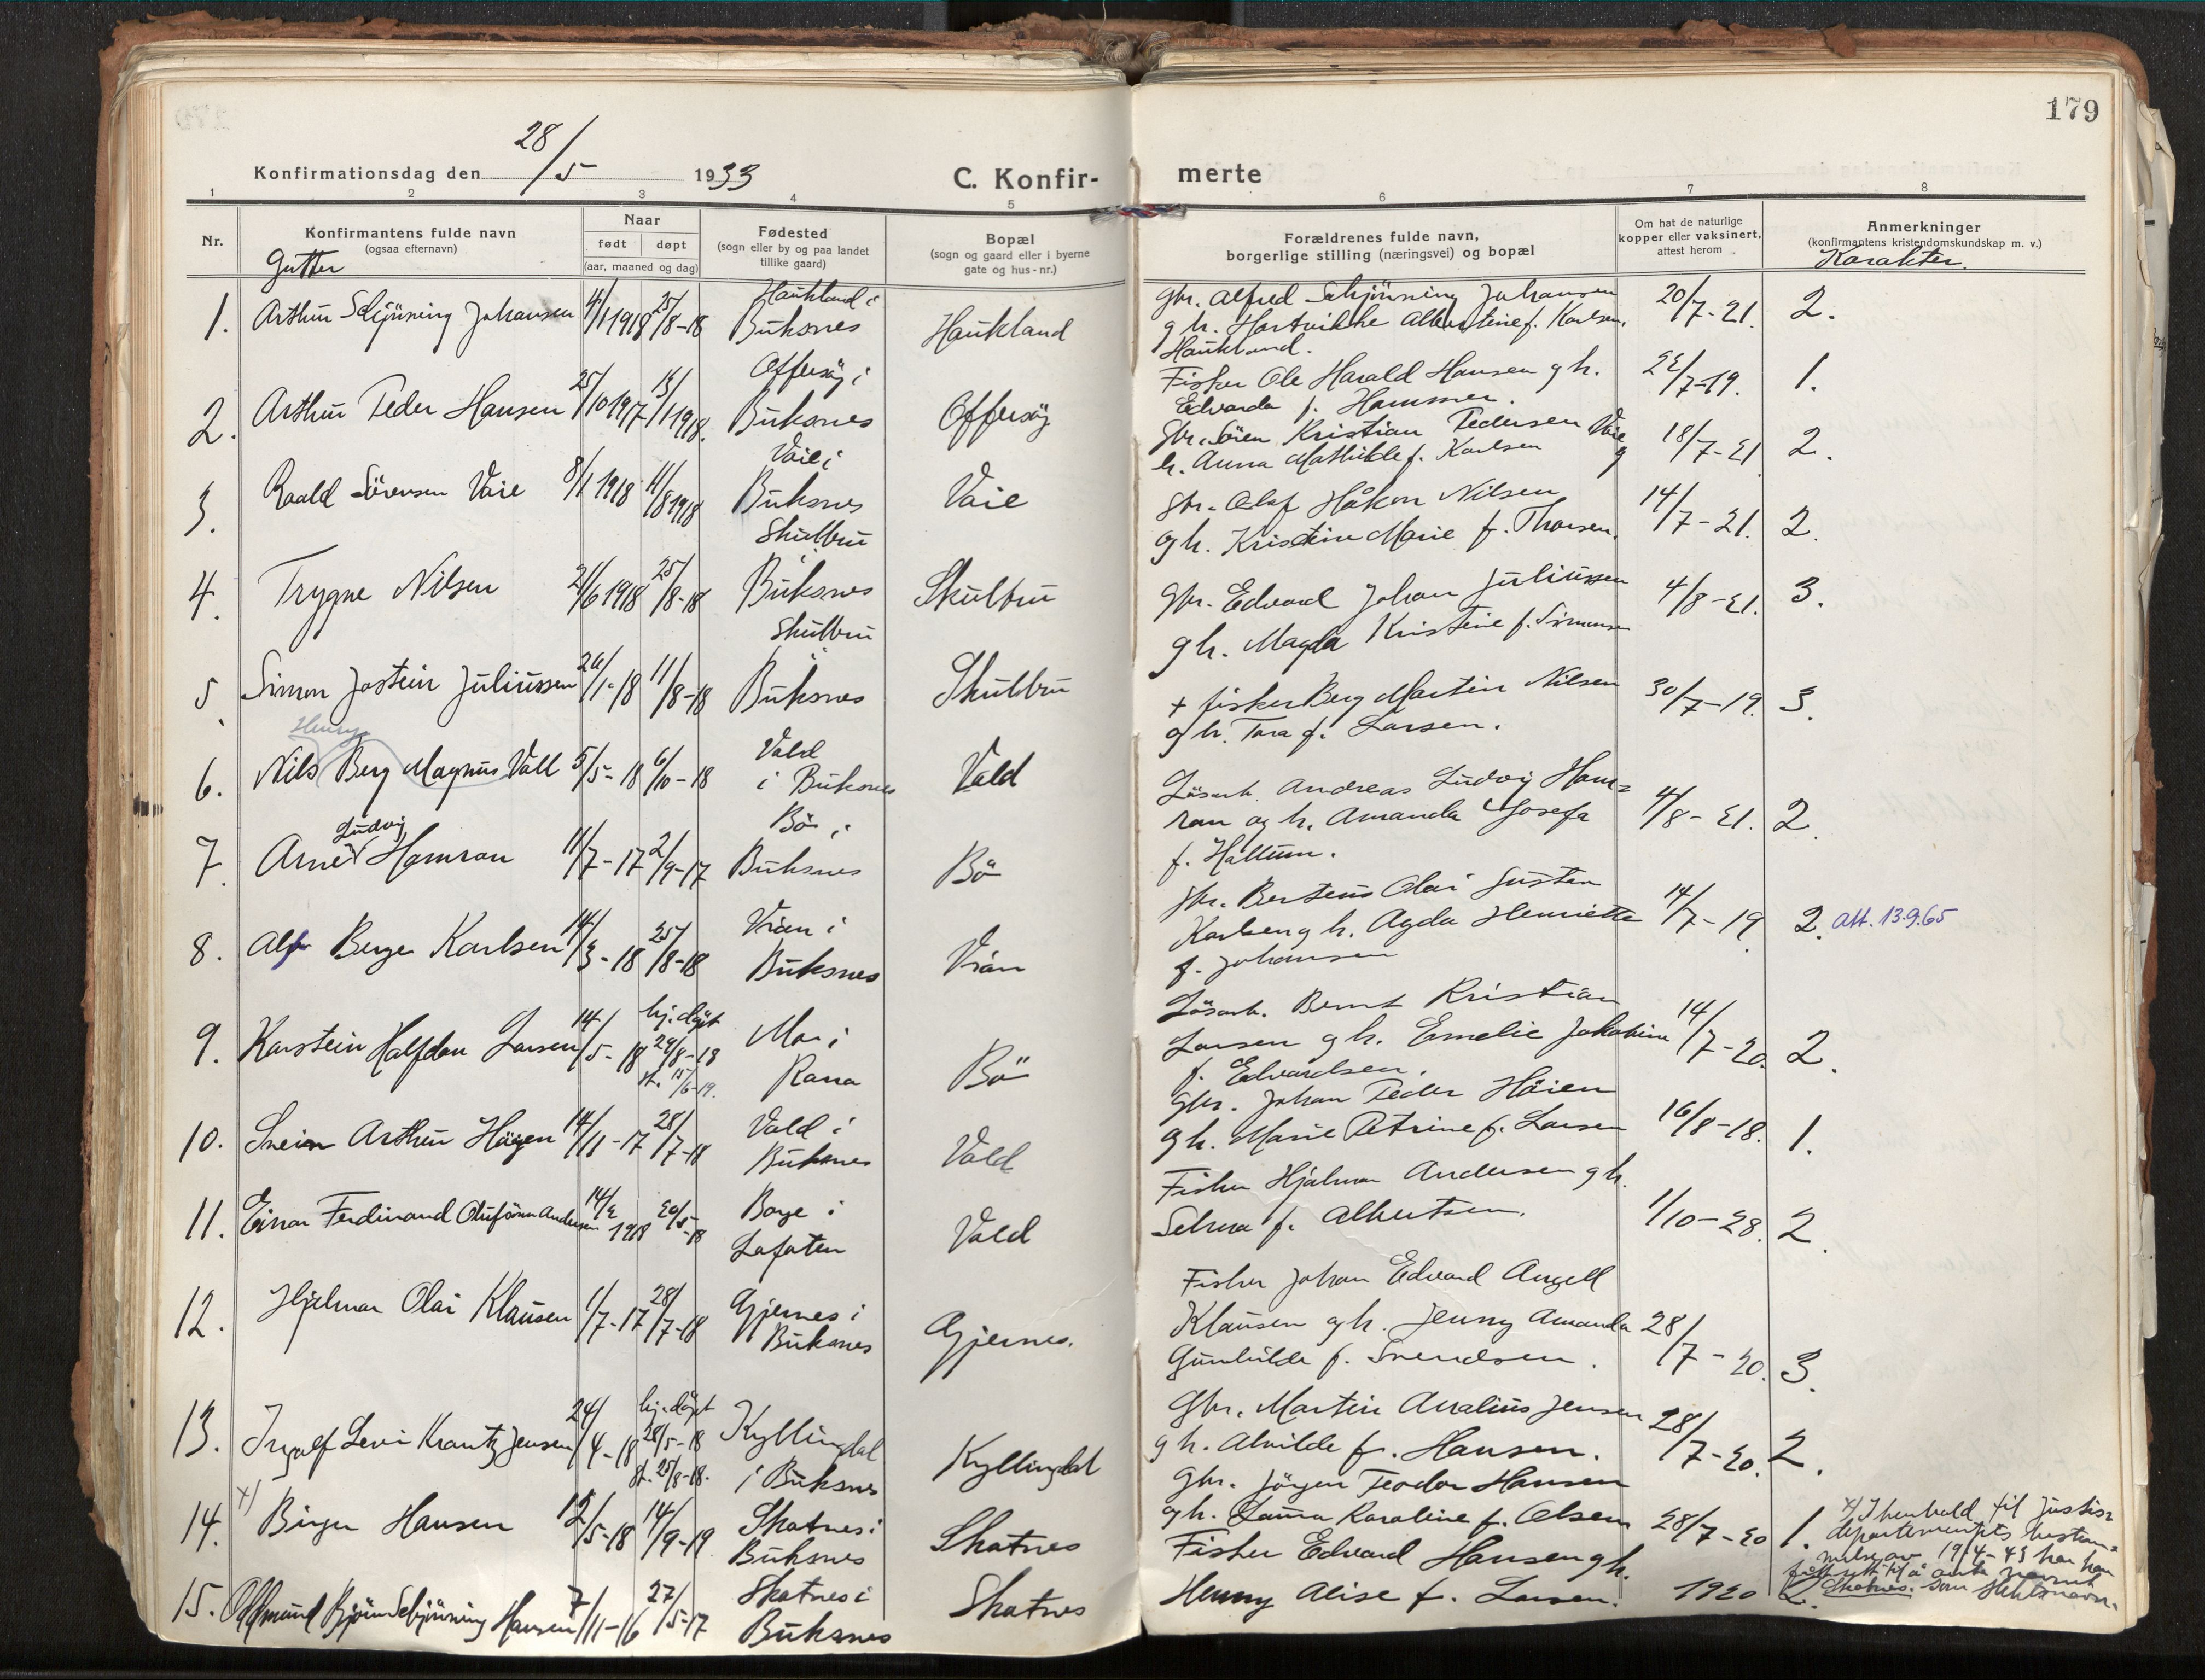 179
28/5
Konfirmationsdag den 1933
C. Konfir-
merte
1 2 3 4 5 6 7 8
Nr.
Konfirmantens fulde navn
(ogsaa efternavn)
Gutter
Naar
født døpt
(aar, maaned og dag)
Fødested
(sogn eller by og paa landet
tillike gaard)
Bopæl
(sogn og gaard eller i byerne
gate og hus-nr.)
Forældrenes fulde navn,
borgerlige stilling (næringsvei) og bopæl
Om hat de naturlige
kopper eller vaksinert,
attest herom
Anmerkninger
(konfirmantens kristendomskundskap m. v.)
Karakter.
1. Arthur Schjöning Johansen 4/1 1918 25/8-18
Haukland i
Buksnes
Haukland
Gbr. Alfred Schjönning Johansen
g h. Hartvikke Albertine f. Karlsen,
Haukland.
20/7-21. 2.
2. Arthur Peder Hansen 25/10 1917 13/1 1918.
Offersöy i
Buksnes
Offersöy
Fisker Ole Harald Hansen g h.
Edvarda f. Hammer.
22/7-19. 1.
3. Roald Sörensen Vaie 8/1 1918 11/8 1918
Vaie i
Buksnes
Vaie
Gbr. Sören Kristian Pedersen Vaie g
h. Anna Mathilde f. Karlsen
18/7-21 2.
4. Trygve Nilsen 21/6 1918 25/8-18
Skulbru
Buksnes
Skulbru
Gbr. Olaf Håkon Nilsen
og h. Kristine Marie f. Thorsen.
14/7-21. 2.
5. Simon Jostein Juliussen 26/1-18 11/8-18
Skulbru
Buksnes
Skulbru
Gbr. Edvard Johan Juliussen
g h. Magda Kristine f. Simonsen
4/8-21. 3.
Henry
6. Nils Berg Magnus Voll 5/5-18 6/10-18
Vold
i Buksnes
Vold
+ fisker Berg Martin Nilsen
g h. Tora f. Larsen.
30/7-19. 3.
Ludvig
7. Arne Hamran 11/7-17 2/9-17
Bö i
Buksnes
Bö
Lösarb. Andreas Ludvig Ham=
ran og h. Amanda Josefa
f. Hallum.
4/8-21. 2.
8. Alf Berge Karlsen 14/3-18 25/8-18
Vian i
Buksnes
Vian
Gbr. Berteus Olai Justen
Karlsen g h. Agda Henriette
f. Johansen
14/7-19. 2. Att. 13.9.65
9. Karstein Halfdan Larsen 14/5-18
hj. döpt
29/8-18
st. 15/6-19.
Mo i
Rana
Bö
Lösarb. Bernt Kristian
Larsen g h. Emelie Jakobine
f. Edvardsen.
14/7-20. 2.
10. Svein Arthur Höyen 14/11-17 28/7-18
Vold i
Buksnes
Vold
Gbr. Johan Peder Höien
g h. Marie Petrine f. Larsen
16/8-18. 1.
11. Einar Ferdinand Andersen 14/2 1918 20/5-18
Borge i
Lofoten
Vold
Fisker Hjalmar Andersen g h.
Selma f. Albertsen.
1/10-28. 2.
12. Hjalmar Olai Klausen 1/7-17 28/7-18
Gjernes i
Buksnes
Gjernes.
Fisker Johan Edvard Angell
Klausen g h. Jenny Amanda
Gunhilde f. Svendsen.
28/7-20. 3.
13. Ingolf Levi Krantz Jensen 24/4-18
hj. döpt
28/5-18
st. 25/8-18.
Kyllingdal
i Buksnes
Kyllingdal
Gbr. Martin Analius Jensen
g h. Alvilde f. Hansen.
28/7-20. 2.
14. x) Birger Hansen 12/5-18 14/9-19
Skotnes i
Buksnes
Skotnes
Gbr. Jörgen Teodor Hansen
og h. Laura Karoline f. Olsen
28/7-20 1.
x/ I henhold til justis=
departementets bestem=
melse av 19/4-43 har han
fått rett til å anta navnet
Skotnes som slektsnavn.
15. Oddmund Björn Schjöning Hansen 7/11-16 27/5-17
Skotnes i
Buksnes
Skotnes
Fisker Edvard Hansen g h.
Henny Alise f. Larsen.
1920 2.